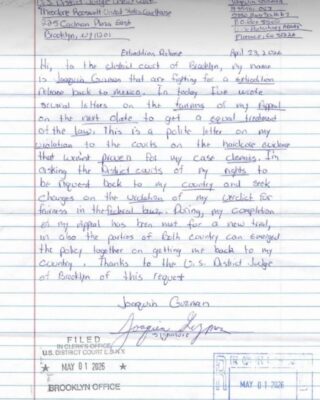 U.S. District Judge
Theodore Roosevelt United States Courthouse
225 Cadman Plaza East
Brooklyn, NY 11201
Joaquin Guzman
Florence, CO 81226
Extradition Release
April 23, 2026
Hi, to the district court of Brooklyn, my name
is Joaquin Guzman that are fighting for a extradition
release back to mexico. In today I've wrote
several letters on the fairness of my Appeal
on the next date to get a equal treatment
of the law. This is a polite letter on my
violation to the courts on the hardcore evidence
that wasnt proven for my case closing. I'm
asking the District courts of my rights to
be request back to my country and seek
changes on the violation of my verdict for
fairness in the federal law. During, my completion
of my Appeal has been met for a new trial,
in also the parties of Both country can
the policy together on getting me back to my
country. Thanks to the U.S. District Judge
of Brooklyn of this request
Joaquin Guzman
Signature
FILED
IN CLERK'S OFFICE
U.S. DISTRICT COURT E.D.N.Y.
★ MAY 01 2026 ★
BROOKLYN OFFICE
MAY 01 2026